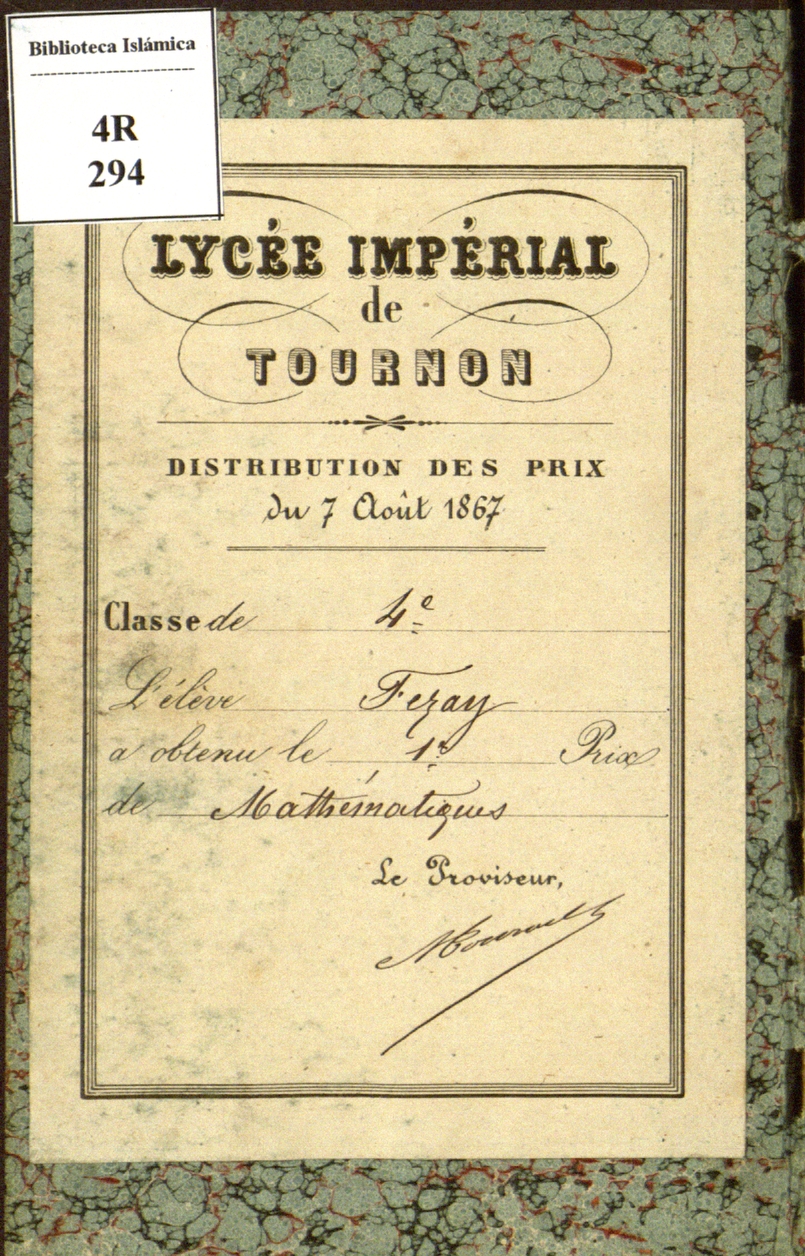 Biblioteca Islámica
4R
294
LYCÉE IMPÉRIAL
de
TOURNON
DISTRIBUTION DES PRIX
du 7 Août 1867
Classe de 4e
L'élève Fezay
a obtenu le 1r Prix
de Mathématiques
Le Proviseur,